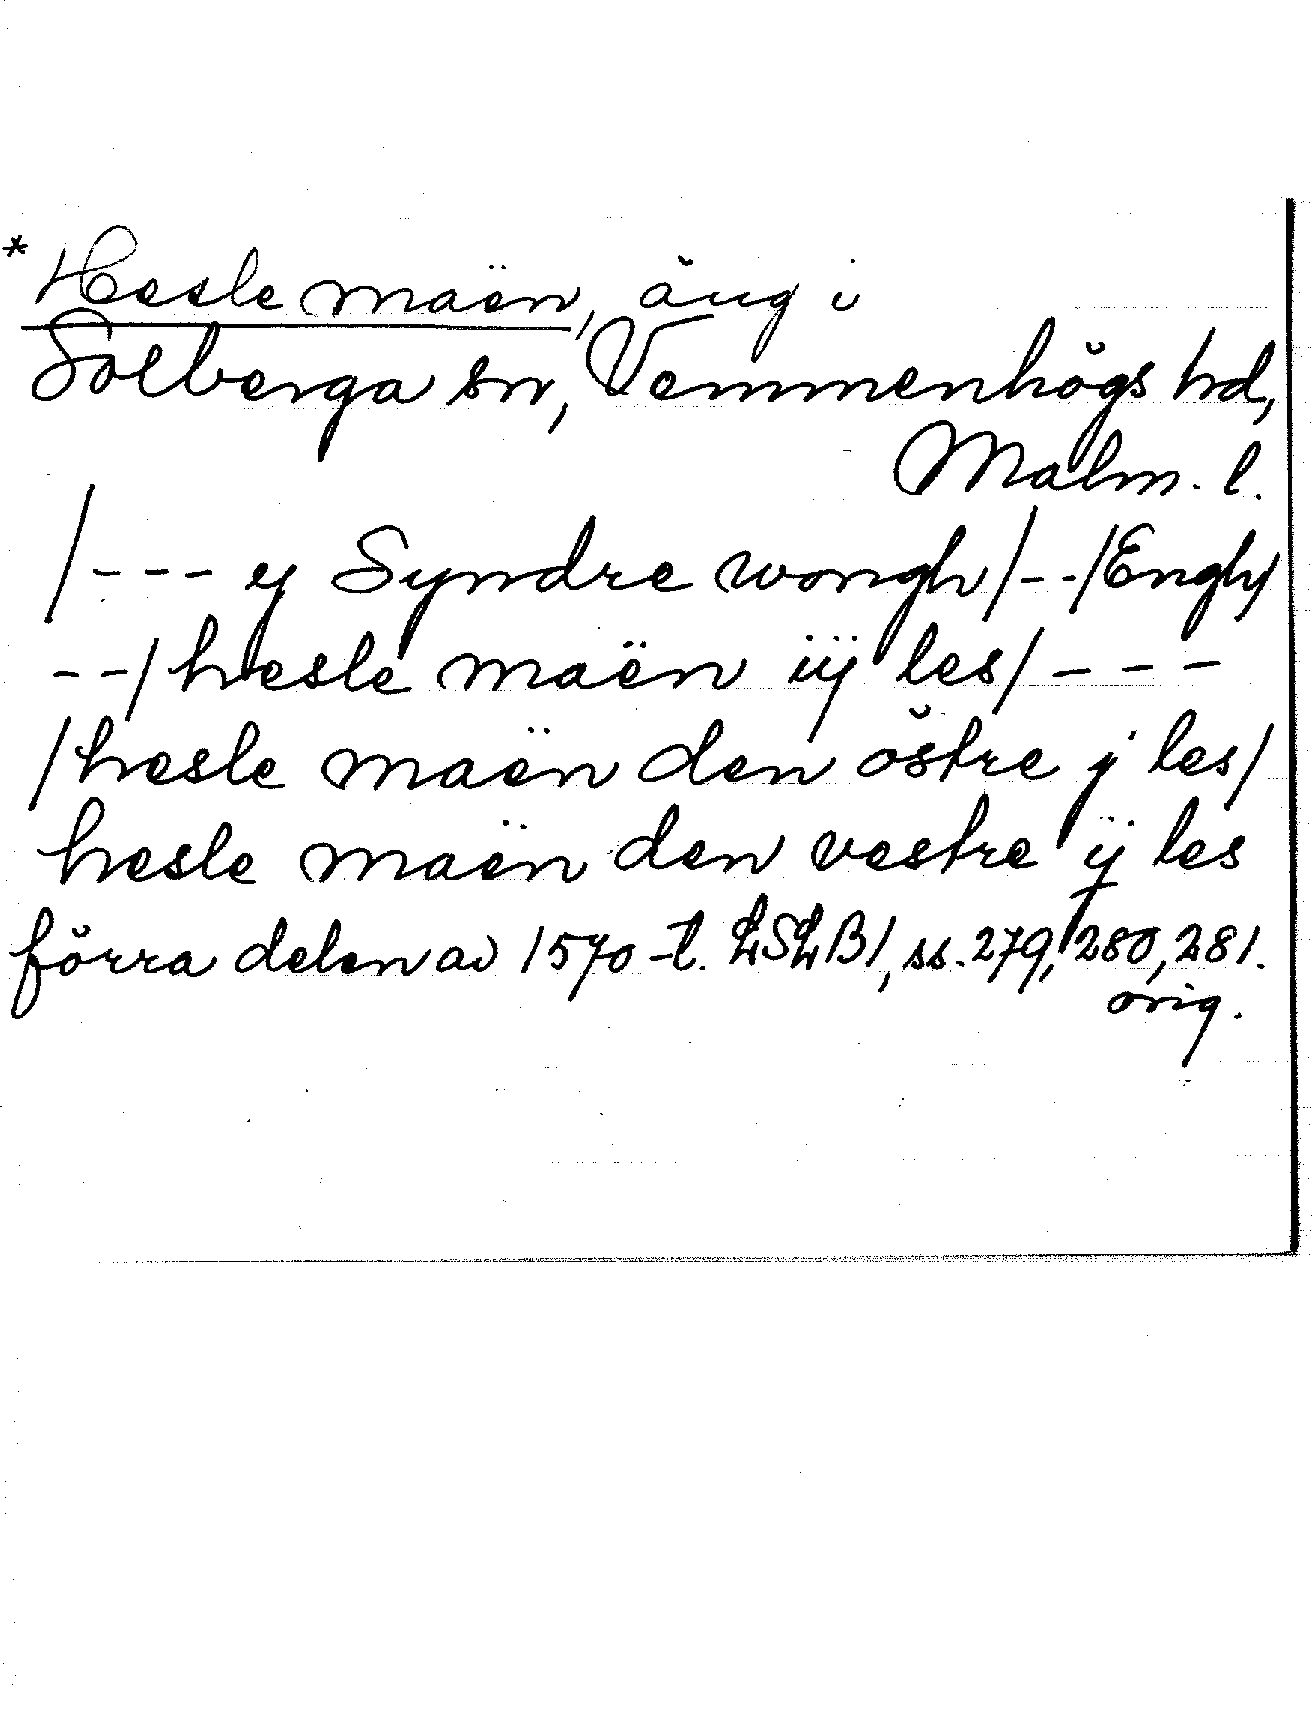 * Hesle maën, äng i
Solberga sn, Vemmenhögs hd,
Malm. l.
/--- y Syndre wongh/--/Engh/
--/hesle maën iij les/---
/hesle maën den östre j les/
hesle maën den vestre ij les
förra delen av 1570-t. LSLB1, ss. 279, 280, 281.
orig.